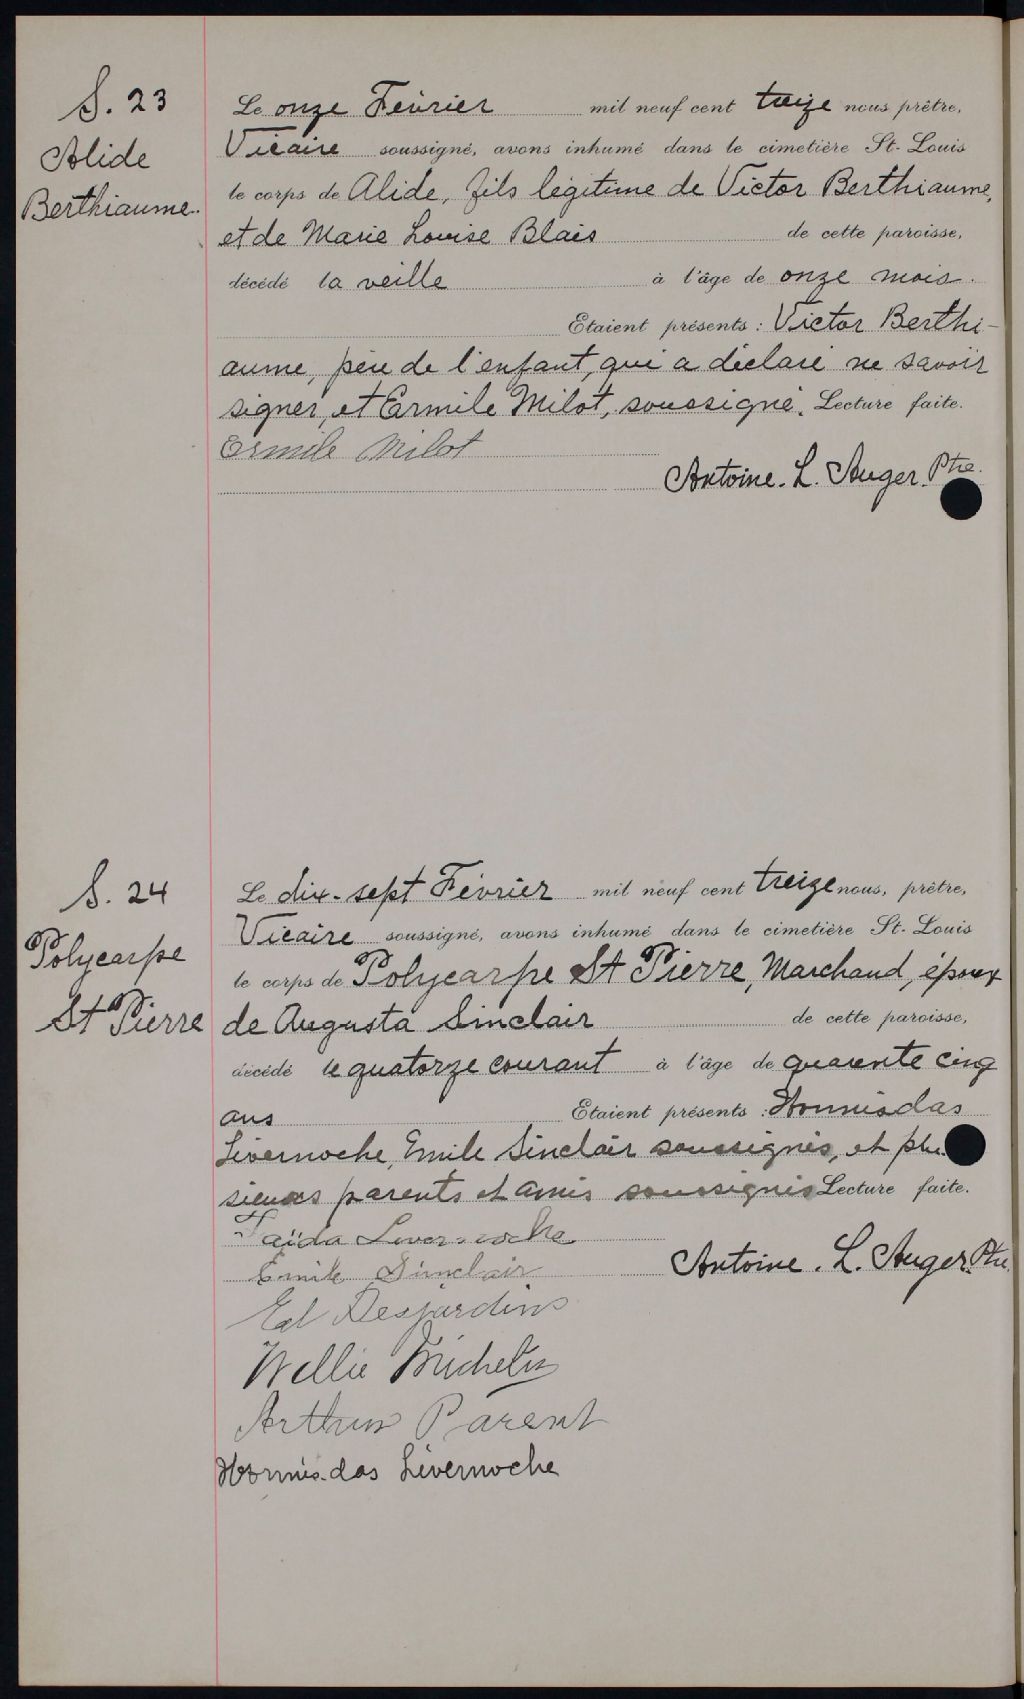 S. 23
Alide
Berthiaume.
Le onze Février mil neuf cent treize nous prêtre,
Vicaire soussigné, avons inhumé dans le cimetière St-Louis
le corps de Alide, fils légitime de Victor Berthiaume,
et de Marie Louise Blais de cette paroisse,
décédé la veille à l'âge de onze mois.
Etaient présents : Victor Berthi-
aume, père de l'enfant, qui a déclaré ne savoir
signer, et Ermile Milot, soussigné. Lecture faite.
Ermile Milot
Antoine. L. Auger. Ptre.
S. 24
Polycarpe
St Pierre
Le dix-sept Février mil neuf cent treize nous, prêtre,
Vicaire soussigné, avons inhumé dans le cimetière St-Louis
le corps de Polycarpe St Pierre, Marchand, époux
de Augusta Sinclair de cette paroisse,
décédé le quatorze courant à l'âge de quarente cinq
ans Etaient présents : Hormisdas
Livernoche, Emile Sinclair soussignés, et plu
sieurs parents et amis soussignés Lecture faite.
Livernoche
Emile Sinclair
Antoine. L. Auger. Ptre
Ed Desjardins
Wellie Michelin
Arthur Parent
Hormis-das Livernoche